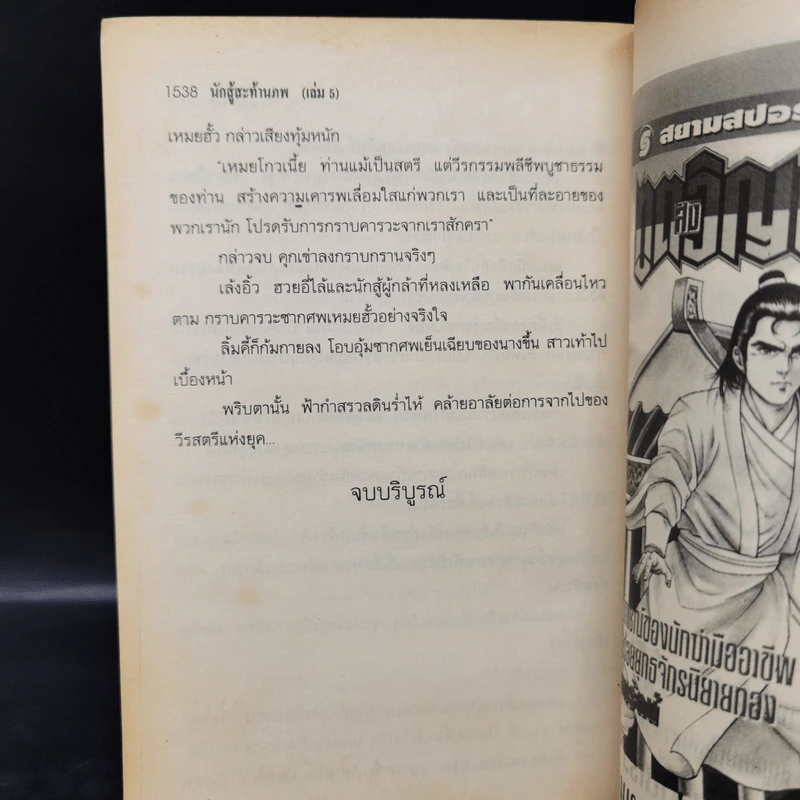 1538 นักสู้สะท้านภพ (เล่ม 5)
เหมยฮั้ว กล่าวเสียงทุ้มหนัก
"เหมยโกวเนี้ย ท่านแม้เป็นสตรี แต่วีรกรรมพลีชีพบูชาธรรม
ของท่าน สร้างความเคารพเลื่อมใสแก่พวกเรา และเป็นที่ละอายของ
พวกเรานัก โปรดรับการกราบคารวะจากเราสักครา"
กล่าวจบ คุกเข่าลงกราบกรานจริงๆ
เล้งอิ้ว ฮวยอี่ไล้และนักสู้ผู้กล้าที่หลงเหลือ พากันเคลื่อนไหว
ตาม กราบคารวะซากศพเหมยฮั้วอย่างจริงใจ
ลิ้มคี้ก็ก้มกายลง โอบอุ้มซากศพเย็นเฉียบของนางขึ้น สาวเท้าไป
เบื้องหน้า
พริบตานั้น ฟ้ากำสรวลดินร่ำไห้ คล้ายอาลัยต่อการจากไปของ
วีรสตรีแห่งยุค...
จบบริบูรณ์
สยามสปอร
นักฆ่ามืออาชีพ
ยุทธจักรนิยาย